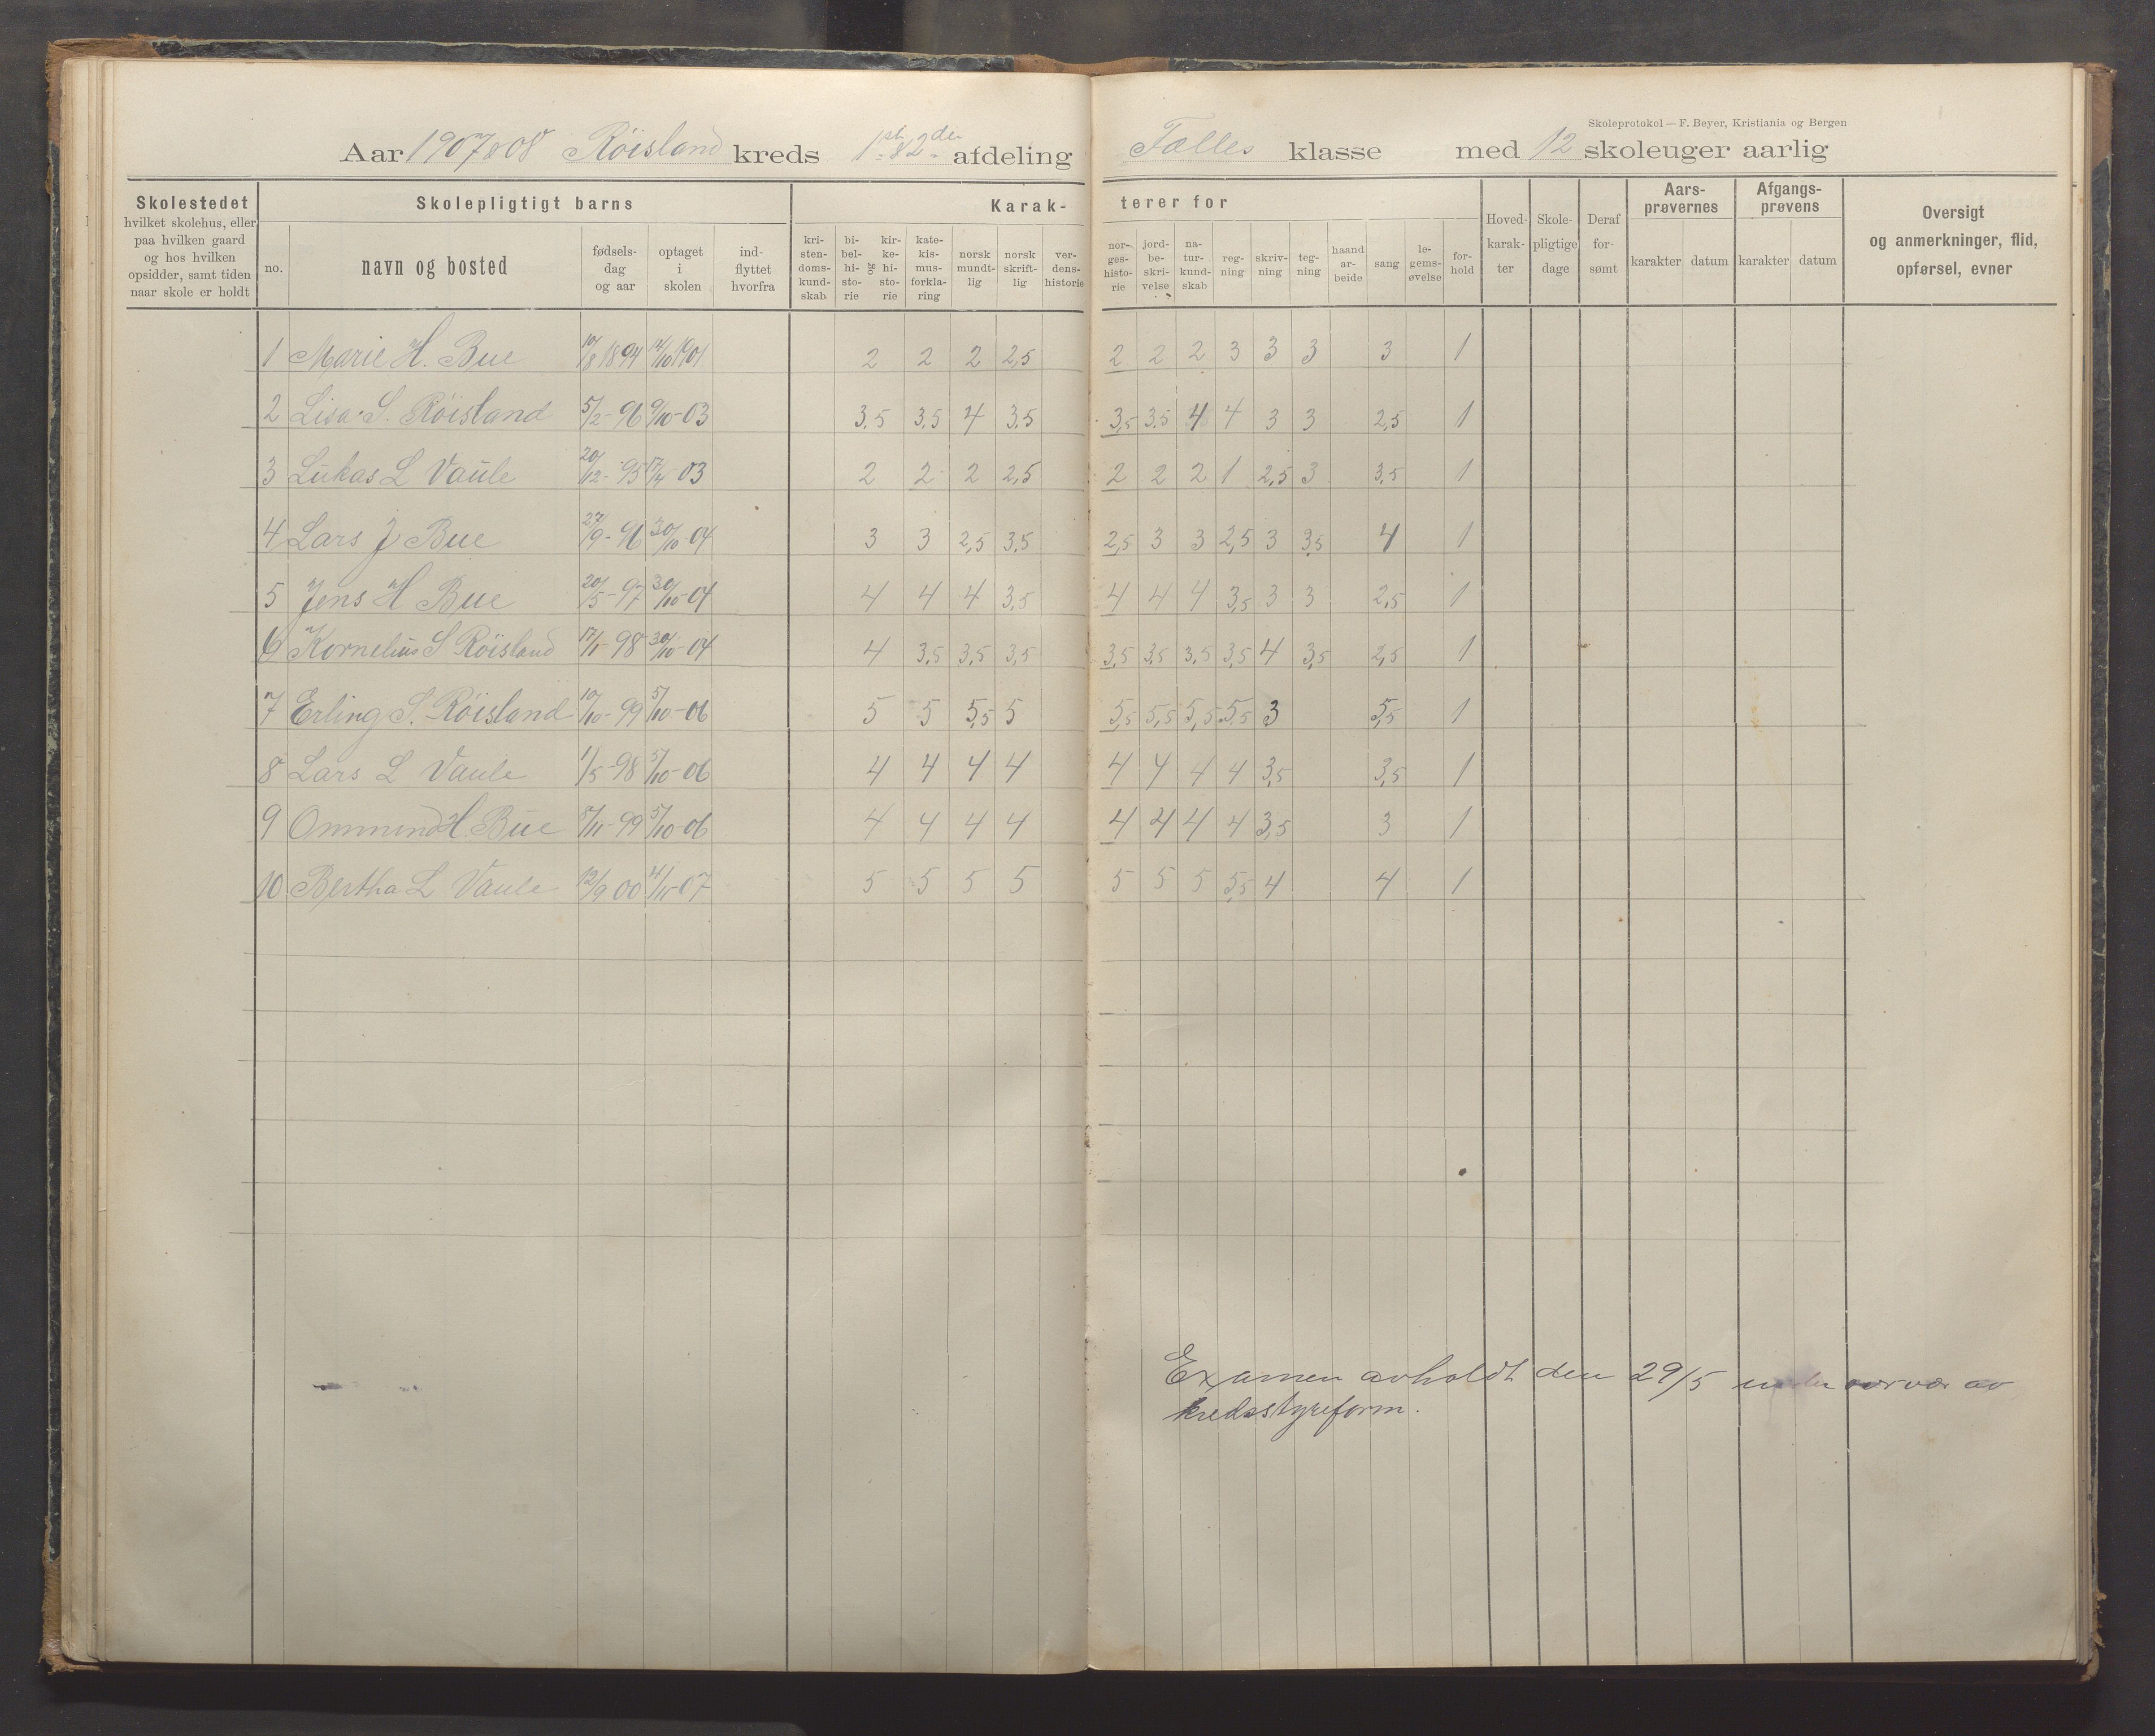 Skoleprotokol — F. Beyer, Kristiania og Bergen
Aar 1907 & 08 Röisland kreds 1ste & 2den afdeling Fælles klasse med 12 skoleuger aarlig
Skolestedet hvilket skolehus, eller paa hvilken gaard og hos hvilken opsidder, samt tiden naar skole er holdt
Skolepligtigt barns
Karak- terer for
no. navn og bosted fødsels-dag og aar optaget i skolen ind-flyttet hvorfra
kri-sten-doms-kund-skab bi-bel-hi-sto-rie og kir-ke-hi-sto-rie kate-kis-mus-forkla-ring norsk mundt-lig norsk skrift-lig ver-dens-historie
nor-ges-histo-rie jord-be-skri-velse na-tur-kund-skab reg-ning skriv-ning teg-ning haand ar-beide sang le-gems-øvelse for-hold
Hoved-karak-ter Skole-pligtige dage Deraf for-sømt
Aars-prøvernes karakter datum
Afgangs-prøvens karakter datum
Oversigt og anmerkninger, flid, opførsel, evner
1 Marie H. Bue 10/8 1894 14/10 1901 2 2 2 2,5 2 2 2 3 3 3 3 1
2 Lisa S. Röisland 5/2-96 9/10-03 3,5 3,5 4 3,5 3,5 3,5 4 4 3 3 2,5 1
3 Lukas L Vaule 20/12-95 03 2 2 2 2,5 2 2 2 1 2,5 3 3,5 1
4 Lars J Bue 27/9-96 30/10 04 3 3 2,5 3,5 2,5 3 3 2,5 3 3,5 4 1
5 Jens H Bue 20/5-97 30/10-04 4 4 4 3,5 4 4 4 3,5 3 3 2,5 1
6 Kornelius S Röisland 17/1-98 30/10-04 4 3,5 3,5 3,5 3,5 3,5 3,5 3,5 4 3,5 2,5 1
7 Erling S. Röisland 10/10-99 5/10-06 5 5 5,5 5 5,5 5,5 5,5 5,5 3 5,5 1
8 Lars L Vaule 1/5-98 5/10-06 4 4 4 4 4 4 4 4 3,5 3,5 1
9 Ommund H. Bue 8/11-99 5/10-06 4 4 4 4 4 4 4 4 3,5 3 1
10 Bertha L Vaule 12/9 00 4/11-07 5 5 5 5 5 5 5 5,5 4 4 1
Examen avholdt den 29/5 under nærvær av
kredsstyreform.